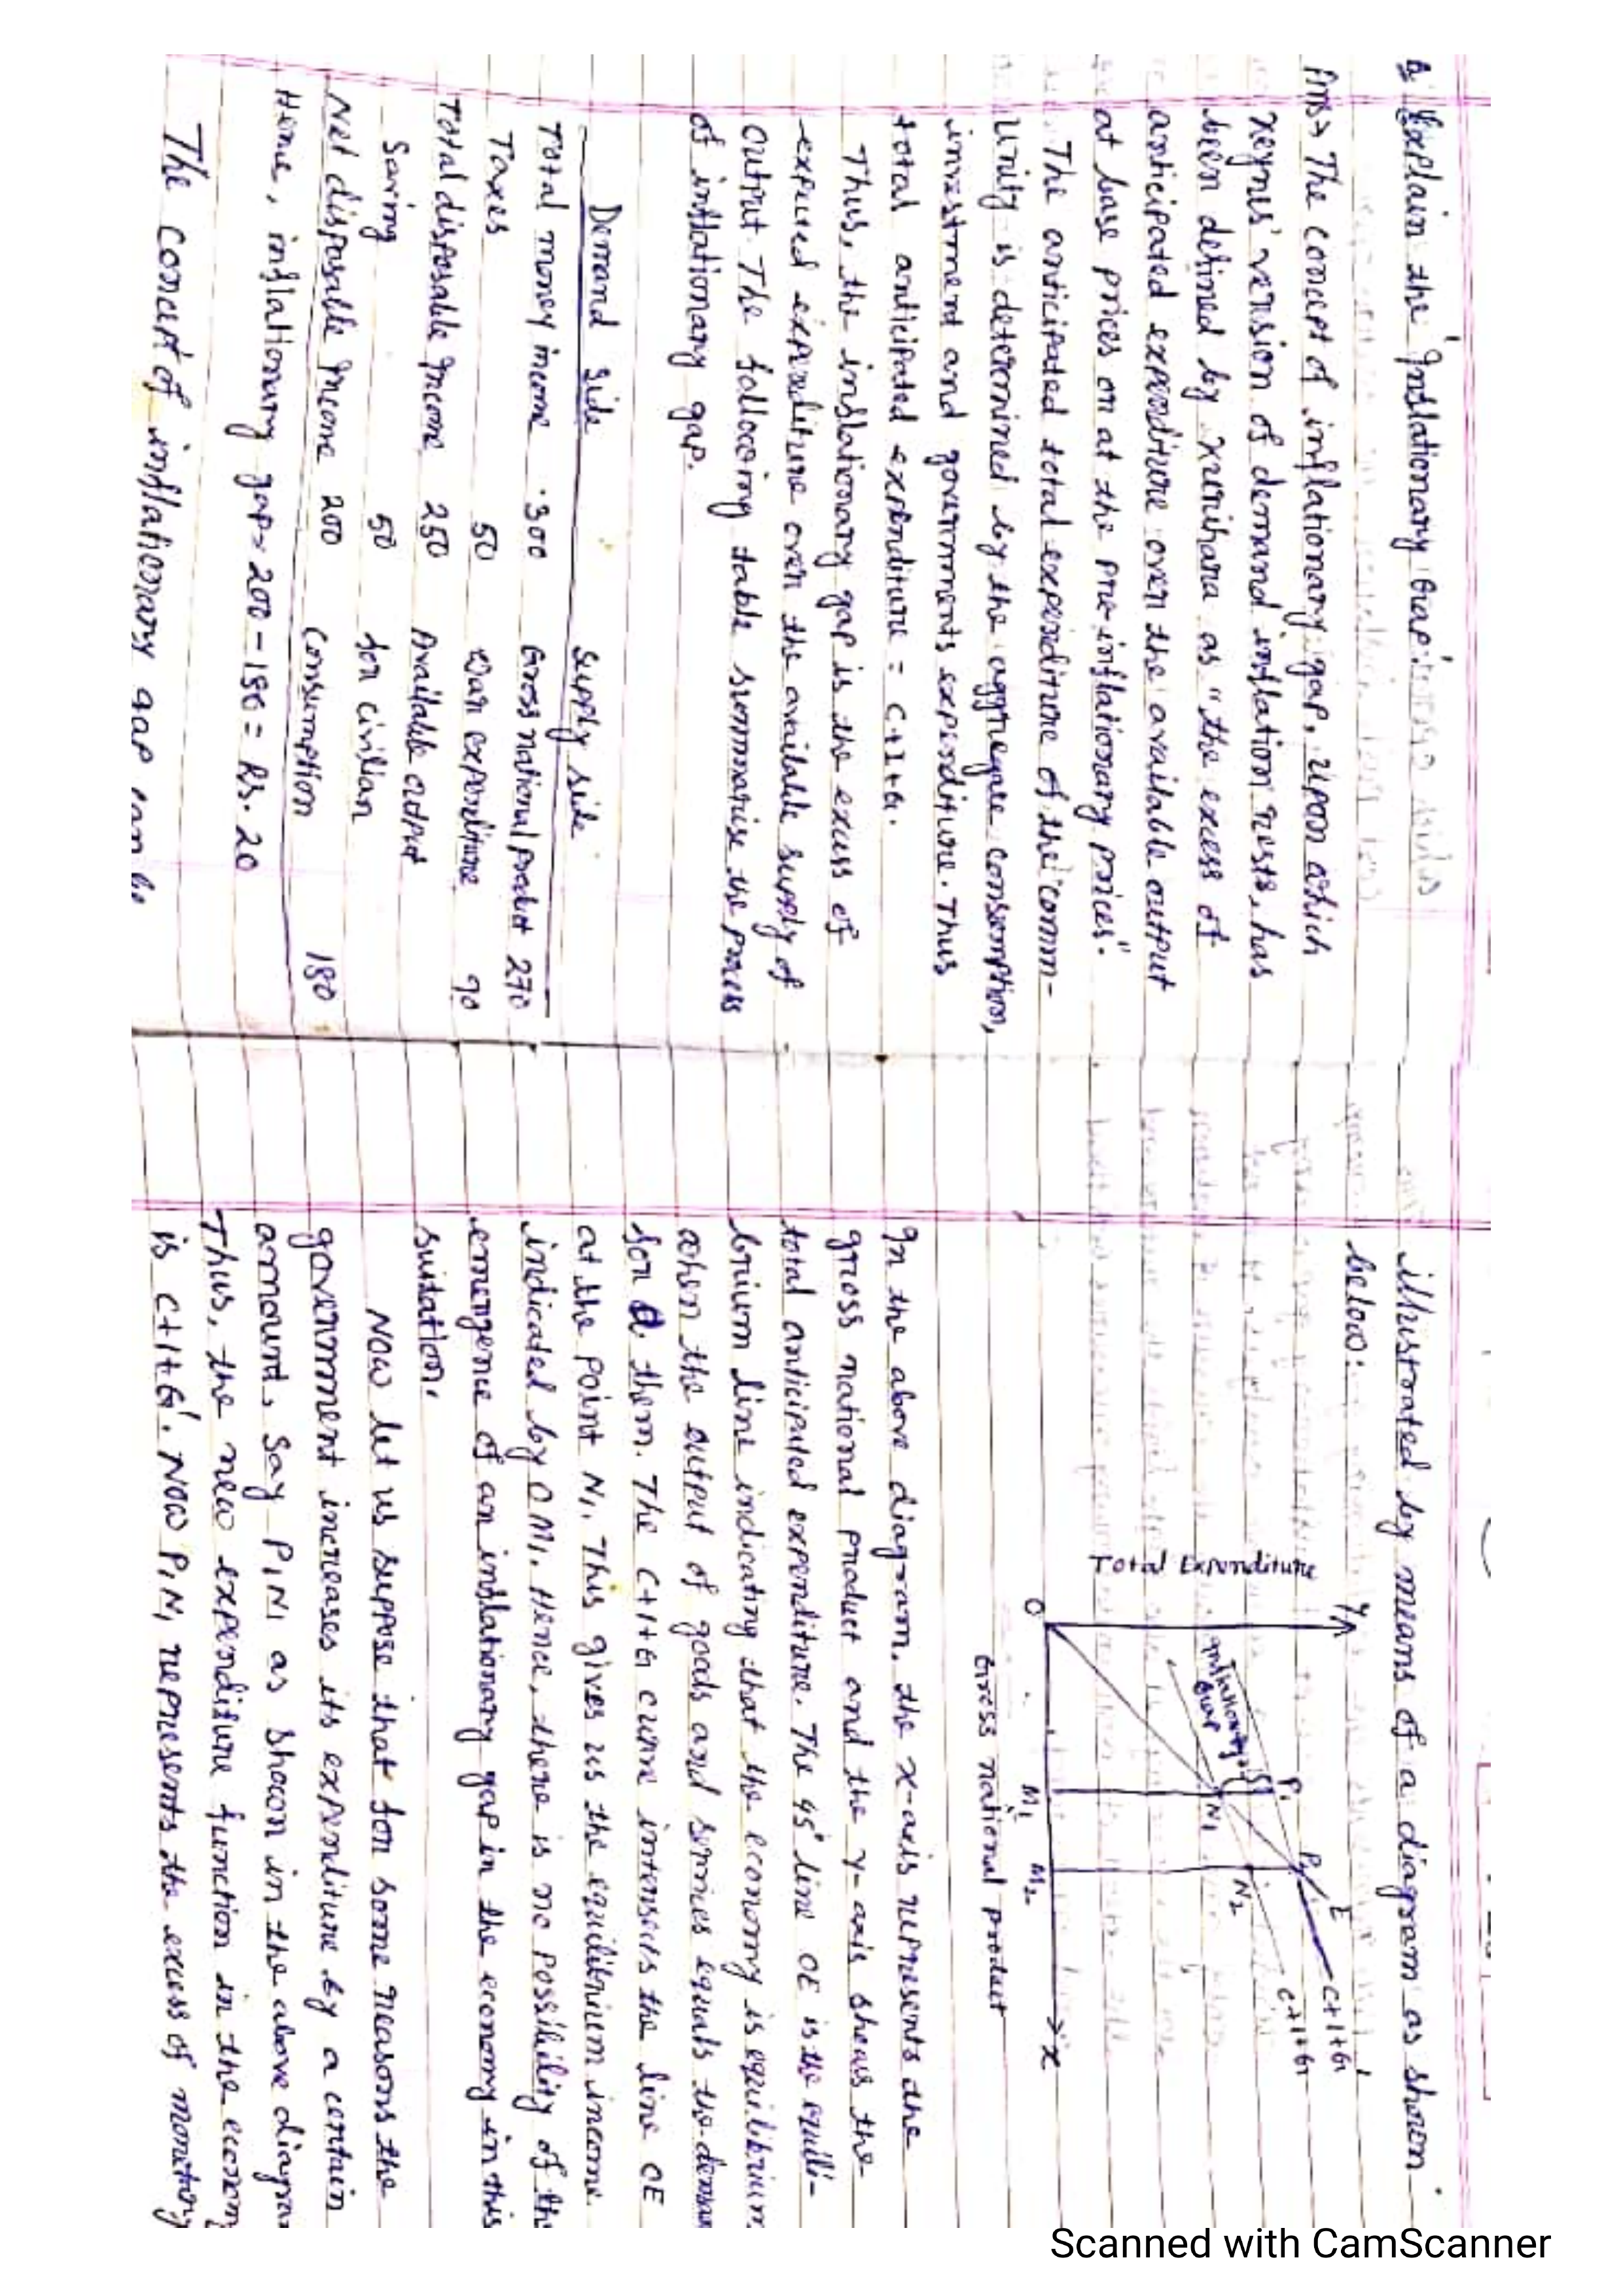 Q Explain the 'Inflationary Gap'.
Ans→ The concept of inflationary gap, upon which
Keynes' version of demand inflation rests, has
been defined by Kurihara as "the excess of
anticipated expenditure over the available output
at base prices or at the pre-inflationary prices".
The anticipated total expenditure of the comm-
unity is determined by the aggregate consumption,
investment and governments expenditure. Thus
total anticipated expenditure = C+I+G.
Thus, the inflationary gap is the excess of
expected expenditure over the available supply of
output. The following table summarise the process
of inflationary gap.
Demand side Supply side
Total money income 300 Gross national product 270
Taxes 50 War expenditure 90
Total disposable Income 250 Available output
Saving 50 for civilian
Net disposable Income 200 Consumption 180
Hence, inflationary gap = 200 - 180 = Rs. 20
The concept of inflationary gap can be
illustrated by means of a diagram as shown
below:
Y
Total Expenditure
O
Inflationary
Gap
P1
N1
P2
N2
E
C+I+G'
C+I+G
M1
M2
X
Gross national product
In the above diagram, the X-axis represents the
gross national product and the Y-axis shows the
total anticipated expenditure. The 45° line OE is the equili-
brium line indicating that the economy is equilibrium
when the output of goods and services equals the deman
for them. The C+I+G curve intersects the line OE
at the point N1. This gives us the equilibrium income
indicated by OM1. Hence, there is no possibility of th
emergence of an inflationary gap in the economy in this
suitation.
Now let us suppose that for some reasons the
government increases its expenditure by a certain
amount, say P1N1 as shown in the above diagra
Thus, the new expenditure function in the econom
is C+I+G'. Now P1N1 represents the excess of monetary
Scanned with CamScanner